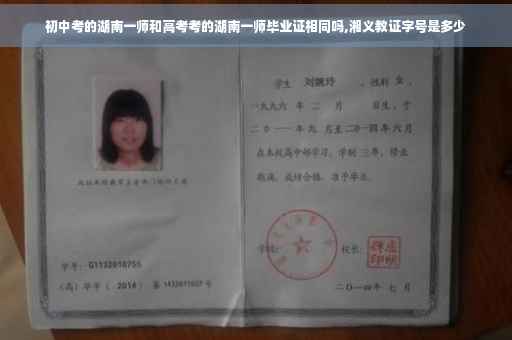 初中考的湖南一师和高考考的湖南一师毕业证相同吗,湘义教证字号是多少
学生 刘婉玲 ,性别 女 ,
一九九六 年 二 月 日生,于
二〇一一年九 月至二〇一四年六月
在本校高中部学习,学制 三年,修业
期满,成绩合格,准予毕业。
学号: G1132010755
(高)毕字( 2014 )第 1432011027 号
学校:
校长:
二〇一四年 七 月